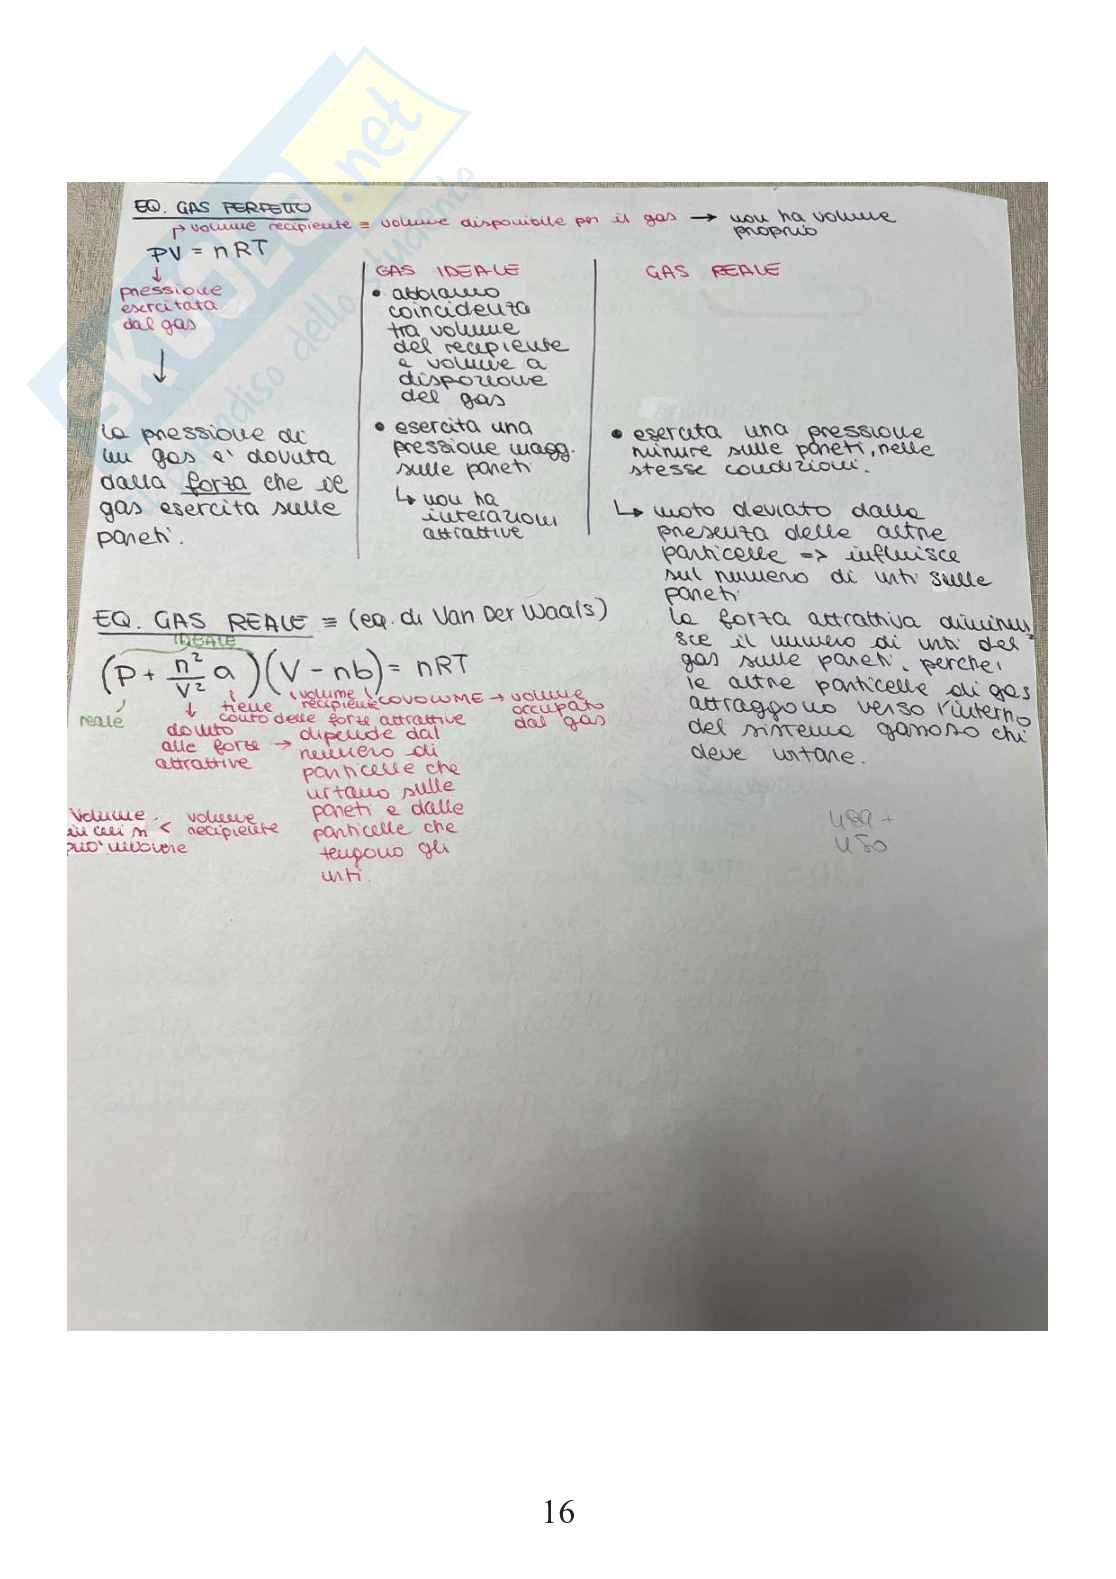 EQ. GAS PERFETTO
volume recipiente = volume disponibile per il gas → non ha volume
proprio
PV = nRT
↓
pressione
esercitata
dal gas
↓
la pressione di
un gas e' dovuta
dalla forza che il
gas esercita sulle
pareti.
GAS IDEALE
• abbiamo
coincidenza
tra volume
del recipiente
e volume a
disposizione
del gas
• esercita una
pressione magg.
sulle pareti
↳ non ha
interazioni
attrattive
GAS REALE
• esercita una pressione
minure sulle pareti, nelle
stesse condizioni.
↳ moto deviato dalla
presenza delle altre
particelle => influisce
sul numero di urti sulle
pareti
la forza attrattiva diminui
sce il numero di urti del
gas sulle pareti, perche'
le altre particelle di gas
attraggono verso l'interno
del sistema gassoso chi
deve urtare.
EQ. GAS REALE ≡ (eq. di Van Der Waals)
IDEALE
(P + n²/V² a)(V - nb) = nRT
reale
↓
dovuto
alle forze →
attrattive
tiene
conto delle forze attrattive
volume
recipiente
COVOLUME → volume
occupato
dal gas
dipende dal
numero di
particelle che
urtano sulle
pareti e dalle
particelle che
tengono gli
urti.
Volume
in cui si < volume recipiente
può muovere
SKUOLA.net
paradiso dello studente
16